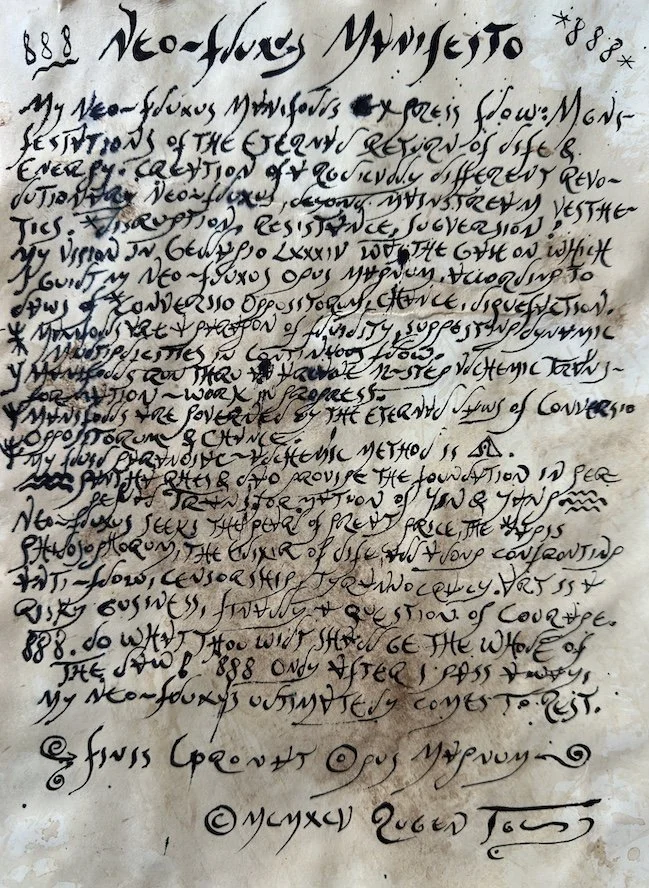 888 Neo-Fluxus Manifesto *888*
My Neo-Fluxus Manifolds Express Flow: Mani-
festations of the Eternal Return of Life &
Energy. Creation of a Radically Different Revo-
lutionary Neo-Fluxus, beyond Mainstream Aesthe-
tics. Disruption, Resistance, Subversion!
My Vision in Gennaio LXXXIV was the on which
I built my Neo-Fluxus Opus Magnum, according to
Laws of Conversio Oppositorum, Chance, Liquefaction.
Manifolds are a of Fluidity, suggesting dynamic
Multiplicities in Continuous Flow.
Manifolds run thru a N-Step Alchemic Trans-
formation ~ Work in Progress.
Manifolds are governed by the Eternal Laws of Conversio
Oppositorum & Chance.
My Fluid Paranoiac-Alchemic Method is
Panta Rhei & Dao provide the Foundation in Per
petual Transformation of Yin & Yang
Neo-Fluxus seeks the Pearl of Great Price, the Lapis
Philosophorum, the Elixir of Life, all along confronting
Anti-Flow, Censorship, Tyrannocracy. Art is a
Risky Business, finally a Question of Courage.
888. Do what thou wilt shall be the whole of
the Law! 888 Only after I pass away
my Neo-Fluxus ultimately comes to Rest.
Finis Coronat Opus Magnum
© MCMXCV Ruben